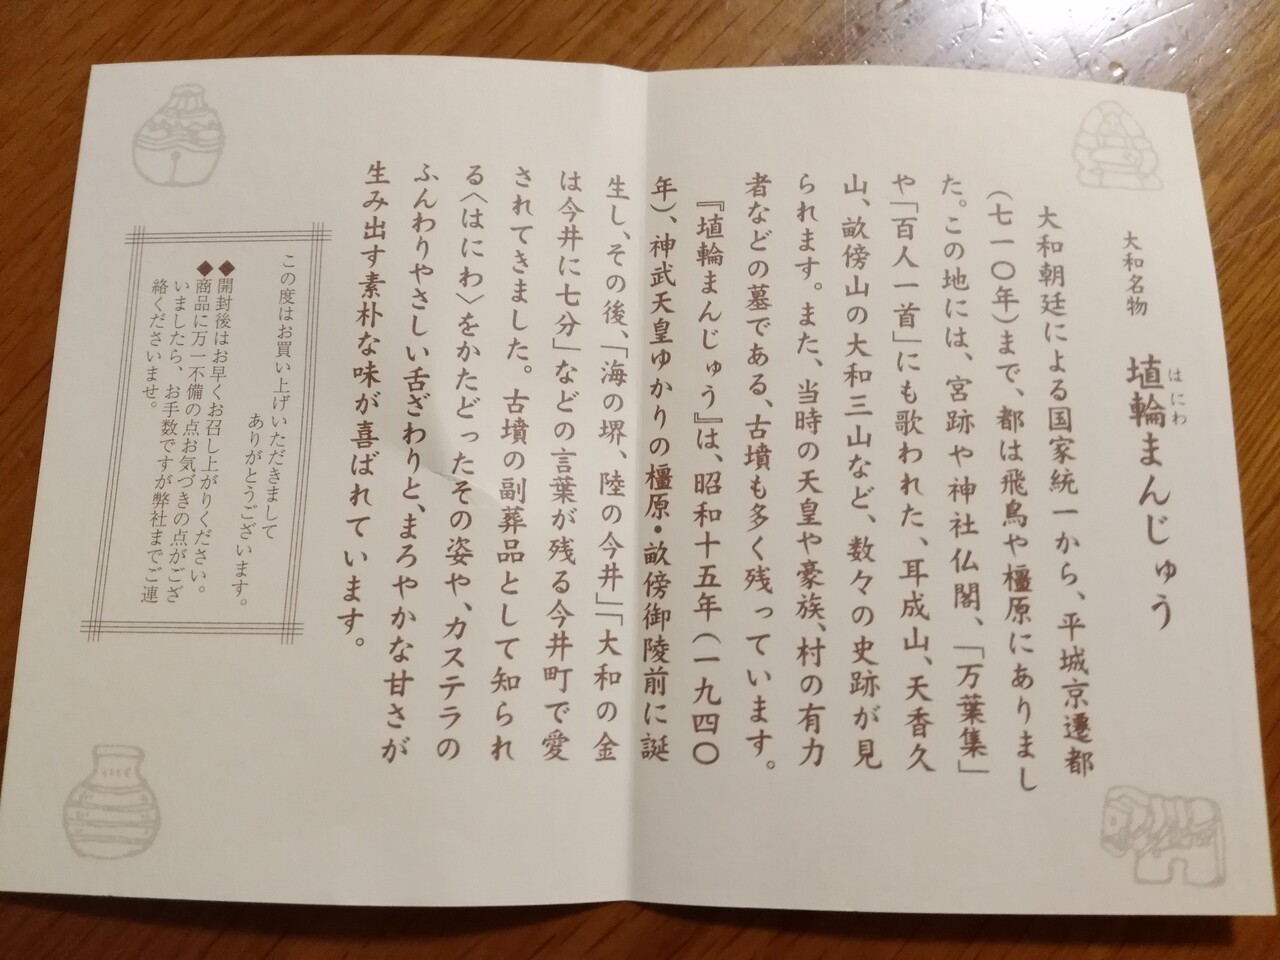 大和名物
埴輪まんじゅう
はにわ
大和朝廷による国家統一から、平城京遷都
(七一〇年)まで、都は飛鳥や橿原にありまし
た。この地には、宮跡や神社仏閣、「万葉集」
や「百人一首」にも歌われた、耳成山、天香久
山、畝傍山の大和三山など、数々の史跡が見
られます。また、当時の天皇や豪族、村の有力
者などの墓である、古墳も多く残っています。
『埴輪まんじゅう』は、昭和十五年(一九四〇
年)、神武天皇ゆかりの橿原・畝傍御陵前に誕
生し、その後、「海の堺、陸の今井」「大和の金
は今井に七分」などの言葉が残る今井町で愛
されてきました。古墳の副葬品として知られ
る〈はにわ〉をかたどったその姿や、カステラの
ふんわりやさしい舌ざわりと、まろやかな甘さが
生み出す素朴な味が喜ばれています。
この度はお買い上げいただきまして
ありがとうございます。
◆開封後はお早くお召し上がりください。
◆商品に万一不備の点お気づきの点がござ
いましたら、お手数ですが弊社までご連
絡くださいませ。